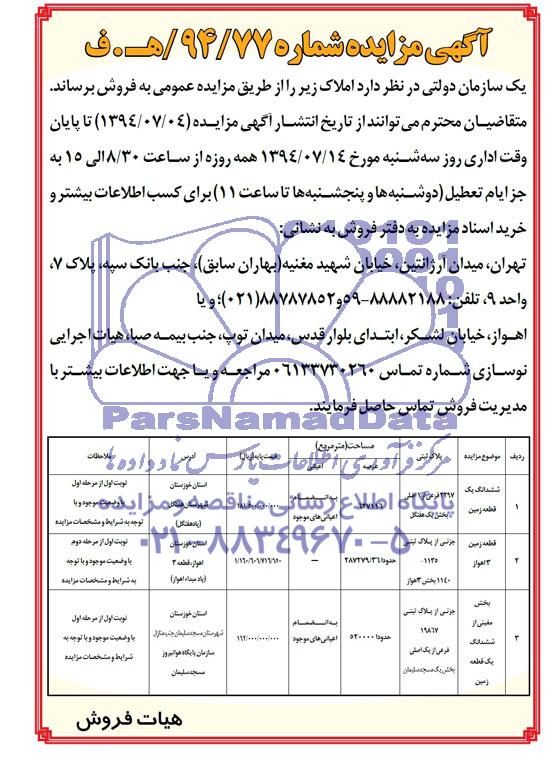 آگهی مزایده شماره ۹۴/۷۷/هـ.ف
یک سازمان دولتی در نظر دارد املاک زیر را از طریق مزایده عمومی به فروش برساند.
متقاضیان محترم می‌توانند از تاریخ انتشار آگهی مزایده (۱۳۹۴/۰۷/۰۴) تا پایان
وقت اداری روز سه‌شنبه مورخ ۱۳۹۴/۰۷/۱۴ همه روزه از ساعت ۸/۳۰ الی ۱۵ به
جز ایام تعطیل (دوشنبه‌ها و پنجشنبه‌ها تا ساعت ۱۱) برای کسب اطلاعات بیشتر و
خرید اسناد مزایده به دفتر فروش به نشانی:
تهران، میدان آرژانتین، خیابان شهید مغنیه(بهاران سابق)، جنب بانک سپه، پلاک ۷،
واحد ۹، تلفن: ۸۸۸۸۲۱۸۸-۵۹و۸۸۷۸۷۸۵۲(۰۲۱)؛ و یا
اهواز، خیابان لشکر، ابتدای بلوار قدس، میدان توپ، جنب بیمه صبا، هیات اجرایی
نوسازی شماره تماس ۰۶۱۳۳۷۳۰۲۶۰ مراجعه و یا جهت اطلاعات بیشتر با
مدیریت فروش تماس حاصل فرمایند.
ParsNamadData
مرکز فرآوری اطلاعات پارس نماد داده‌ها
پایگاه اطلاع رسانی مناقصه و مزایده
۰۲۱-۸۸۳۴۹۶۷۰-۵
ردیف موضوع مزایده پلاک ثبتی مساحت(مترمربع) قیمت پایه(ریال) آدرس ملاحظات
عرصه اعیانی
۱ ششدانگ یک قطعه زمین ۲۳۹۷ فرعی از ۱ اصلی بخش یک هفتگل به انضمام اعیانی‌های موجود استان خوزستان شهرستان هفتگل (یاد هفتگل) نوبت اول از مرحله اول با وضعیت موجود و با توجه به شرایط و مشخصات مزایده
۲ قطعه زمین ۳ اهواز جزئی از پلاک ثبتی ۱۱۳۵- ۱۱۴۰ بخش ۳ اهواز حدودا ۲۸۷۲۷۹/۳۶ — ۱/۱۶۰/۶۰۶/۷۱۶/۹۶۰ استان خوزستان اهواز، قطعه ۳ (یاد میداء اهواز) نوبت اول از مرحله دوم با وضعیت موجود و با توجه به شرایط و مشخصات مزایده
۳ بخش مغبنی از ششدانگ یک قطعه زمین جزئی از پلاک ثبتی ۱۹۸۶۷ فرعی از یک اصلی بخش یک مسجد سلیمان حدودا ۵۲۰۰۰۰ به انضمام اعیانی‌های موجود ۱۱۲/۰۰۰/۰۰۰/۰۰۰ استان خوزستان شهرستان مسجدسلیمان جنب منازل سازمان پایگاه هوانیروز مسجدسلیمان نوبت اول از مرحله اول با وضعیت موجود و با توجه به شرایط و مشخصات مزایده
هیات فروش